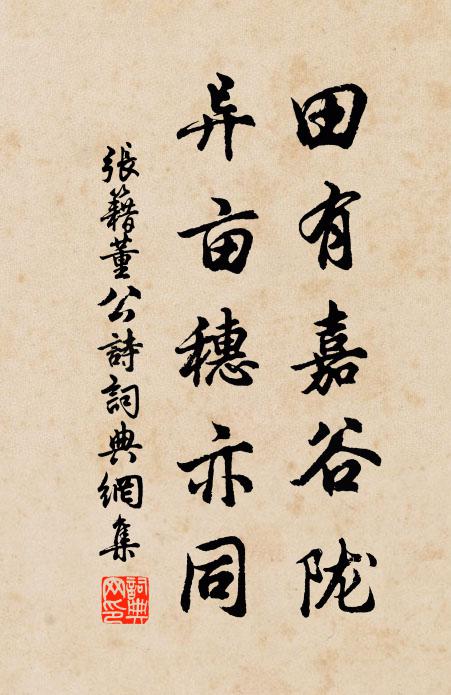 田有嘉谷陇
异亩穗亦同
張籍董公詩詞典網集
詞典
网印